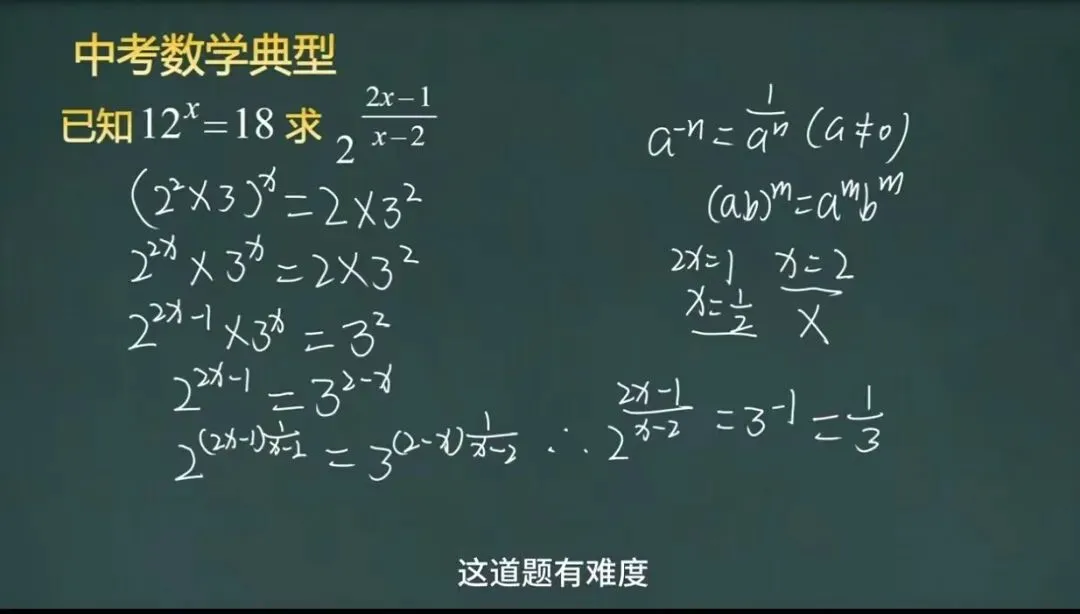 中考数学典型
已知 12^x=18 求 2^((2x-1)/(x-2))
(2²×3)^x=2×3²
2^(2x)×3^x=2×3²
2^(2x-1)×3^x=3²
2^(2x-1)=3^(2-x)
2^((2x-1)1/(x-2))=3^((2-x)1/(x-2)) ∴ 2^((2x-1)/(x-2))=3^(-1)=1/3
a^(-n)=1/a^n (a≠0)
(ab)^m=a^m b^m
2x=1 x=2
x=1/2 ×
这道题有难度